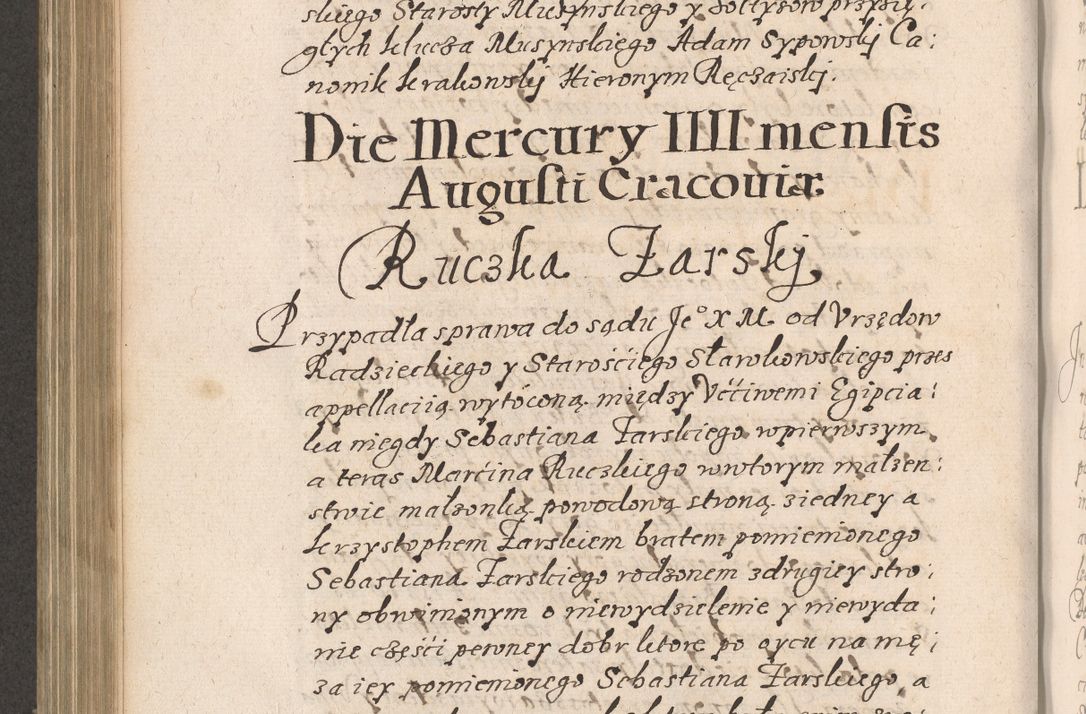 skiego Starosty Muszynskiego y Sołtysow przysię:
głych klucza Musynskiego Adam Sypowskj Ca:
nonik krakowskj Hieronym Ręczaiskj.
Die Mercury IIII mensis
Augusti Cracouiæ
Ruczka Zarskj
Przypadła sprawa do sądu Jeº X M. od Vrzędow
Radzieckiego y Starośćiego Sławkowskiego przes
appellaciią wytóconą między Vććiwemi Egipcia:
ka niegdy Sebastiana Zarskiego wpierwszym
a teras Marćina Ruczkiego wwtorym małzen:
stwie małzonką powodową stroną ziedney a
krzystophem Zarskiem bratem pomienionego
Sebastiana Zarskiego rodzonem zdrugiey stro:
ny obwinionym o niewydzielenie y niewyda:
nie częśći pewney dobr ktore po oycu na mę:
za iey pomienionego Sebastiana Zarskiego a